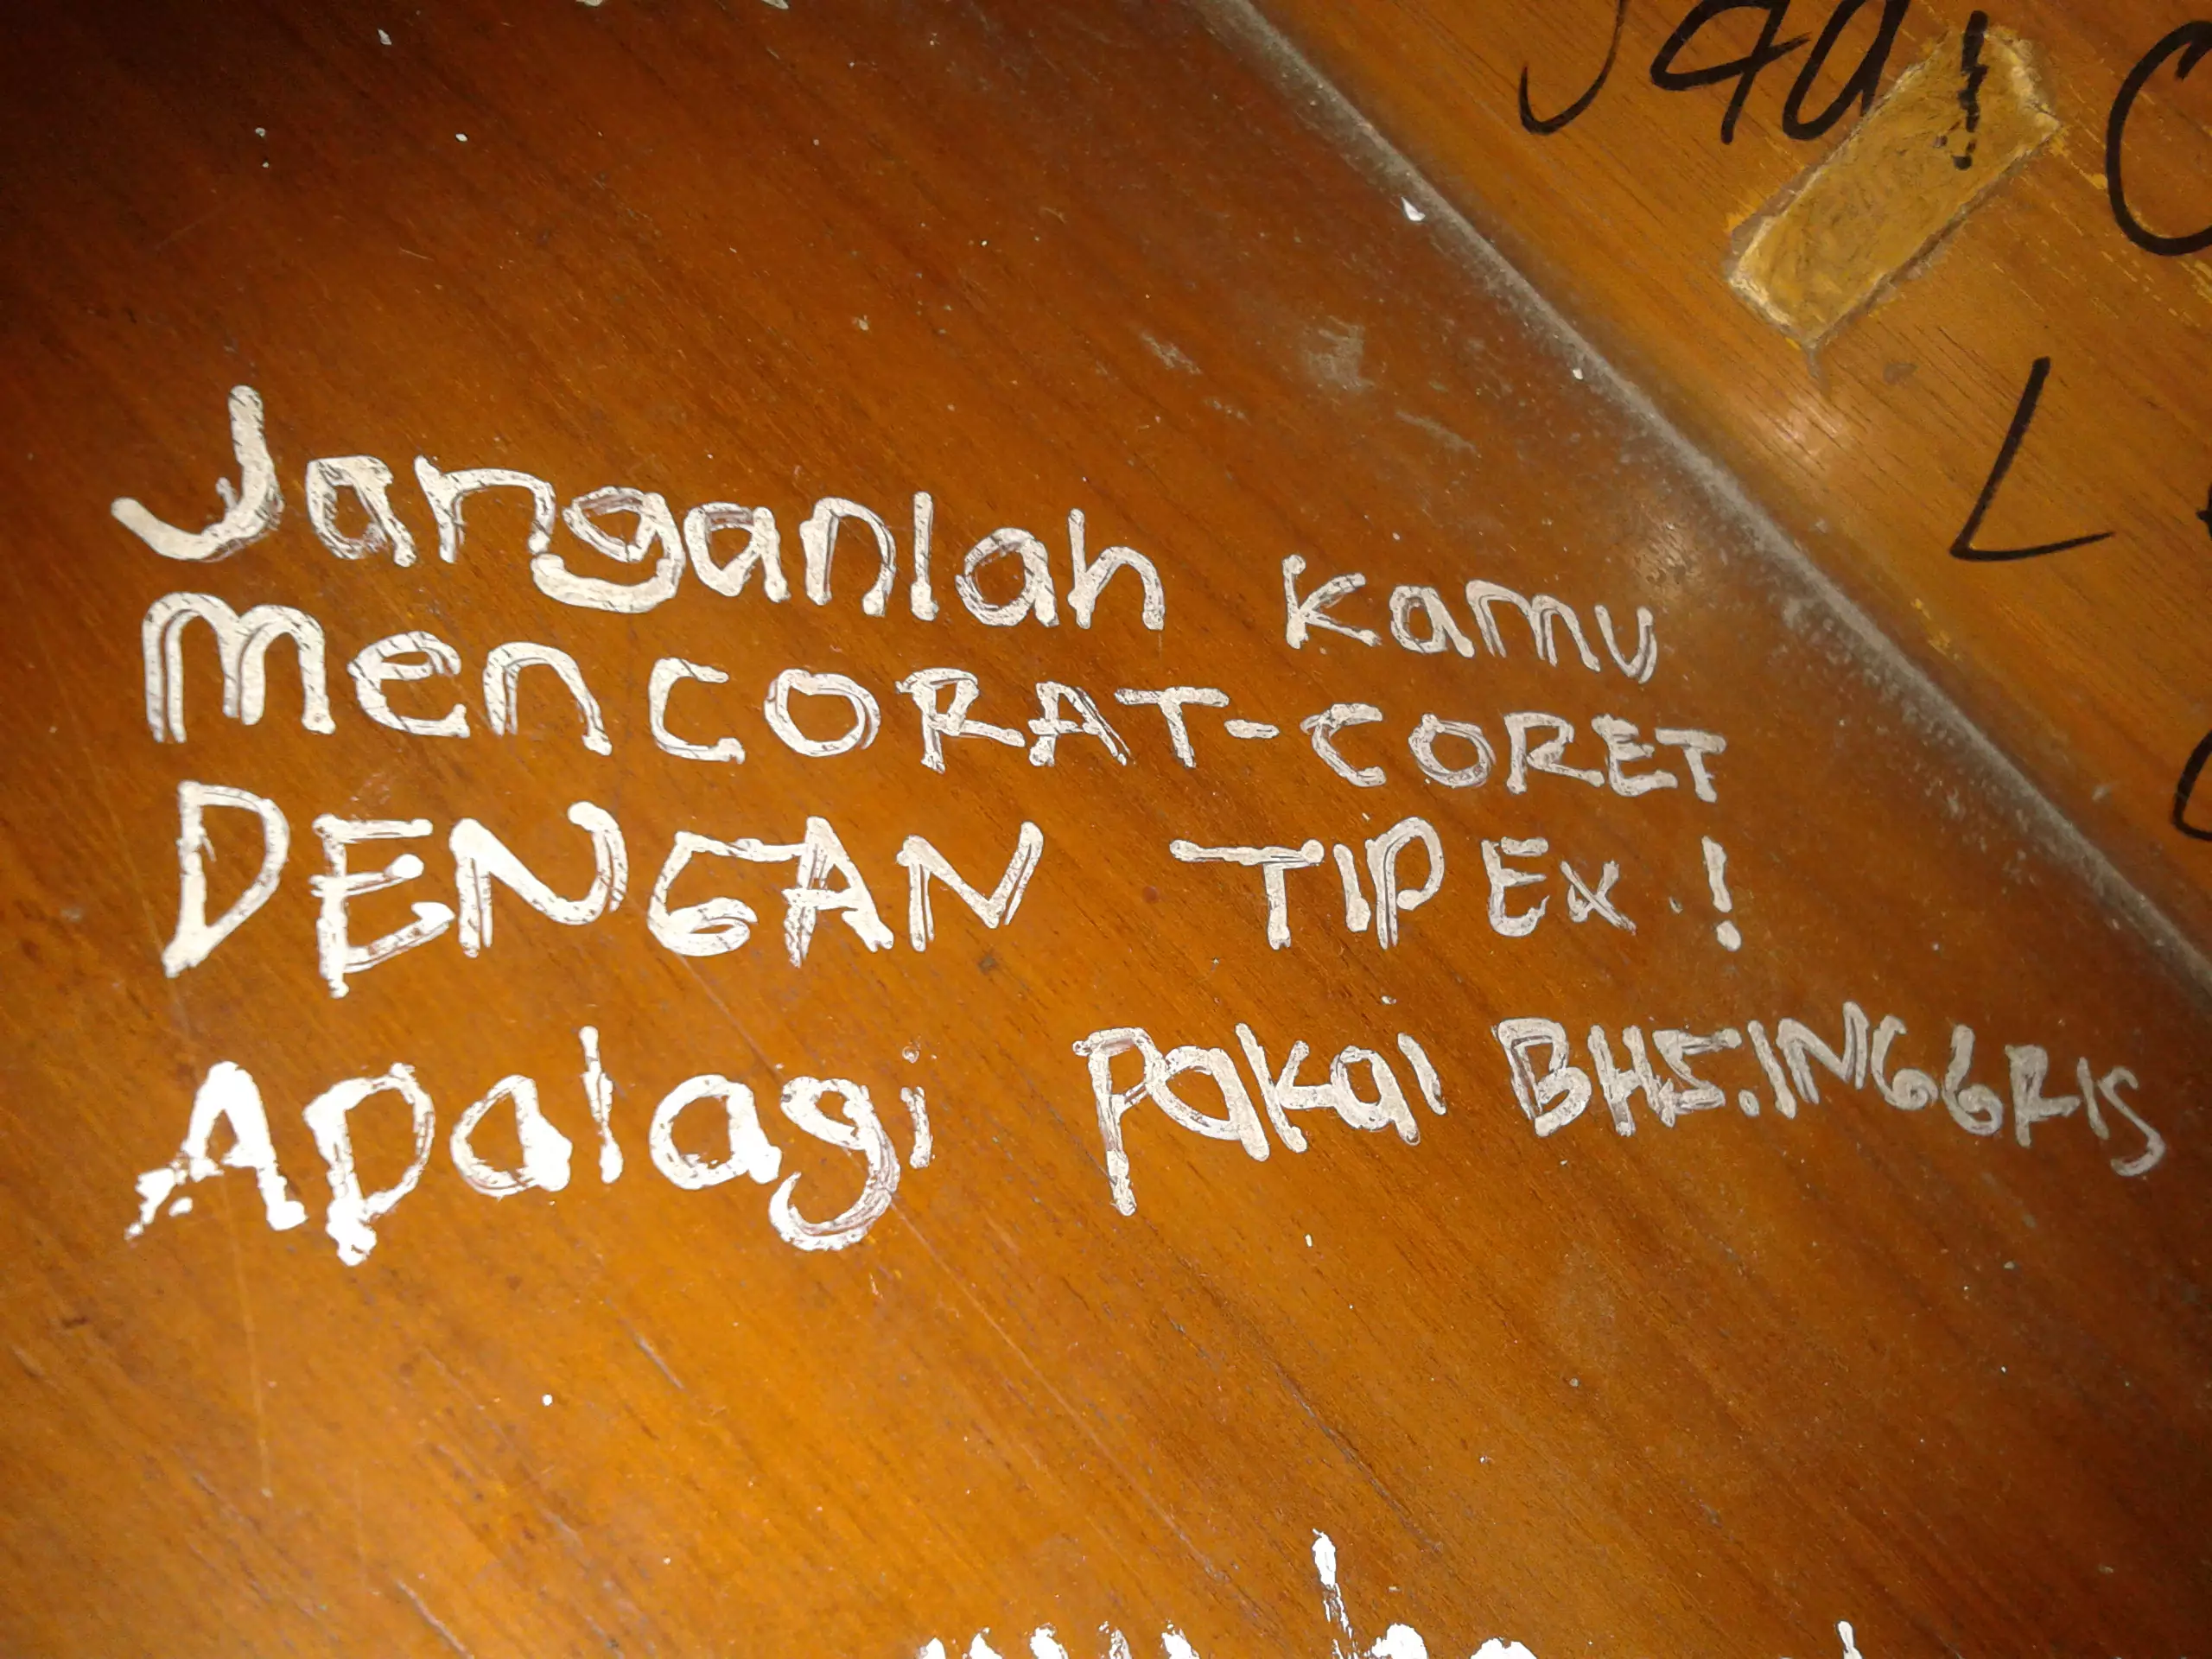 Jadi
Janganlah kamu
mencORAT-CORET
DENGAN TIPEX.!
Apalagi Pakai BHS.INGGRIS